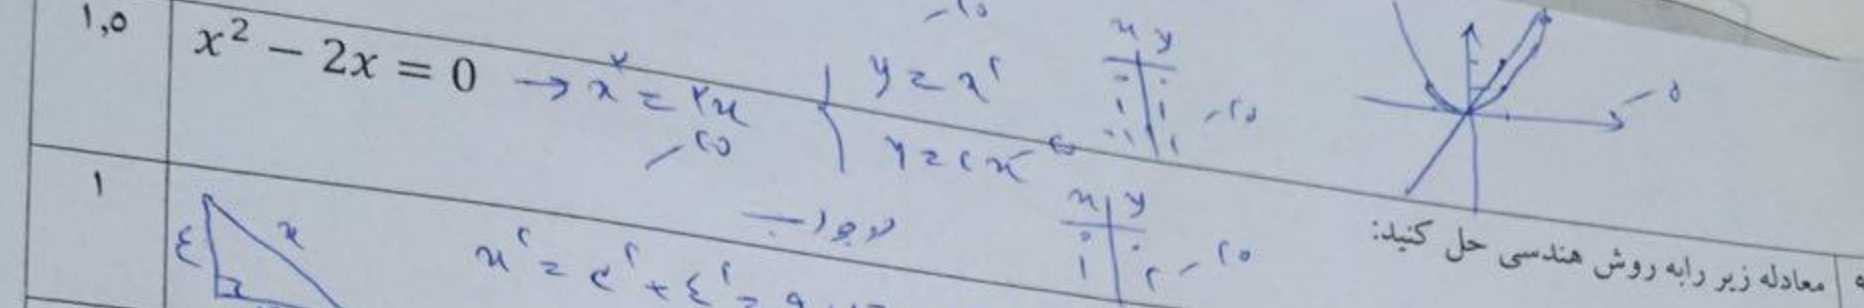 معادله زیر رابه روش هندسی حل کنید:
۱,۵
x² − 2x = 0 → x² = ۲x
۰٫۲۵
y = x²
y = ۲x
x y
۰ ۰
۱ ۱
-۱ ۱
۰٫۲۵
x y
۰ ۰
۱ ۲
۰٫۲۵
۰٫۵
۲ جواب
۱
۴
x